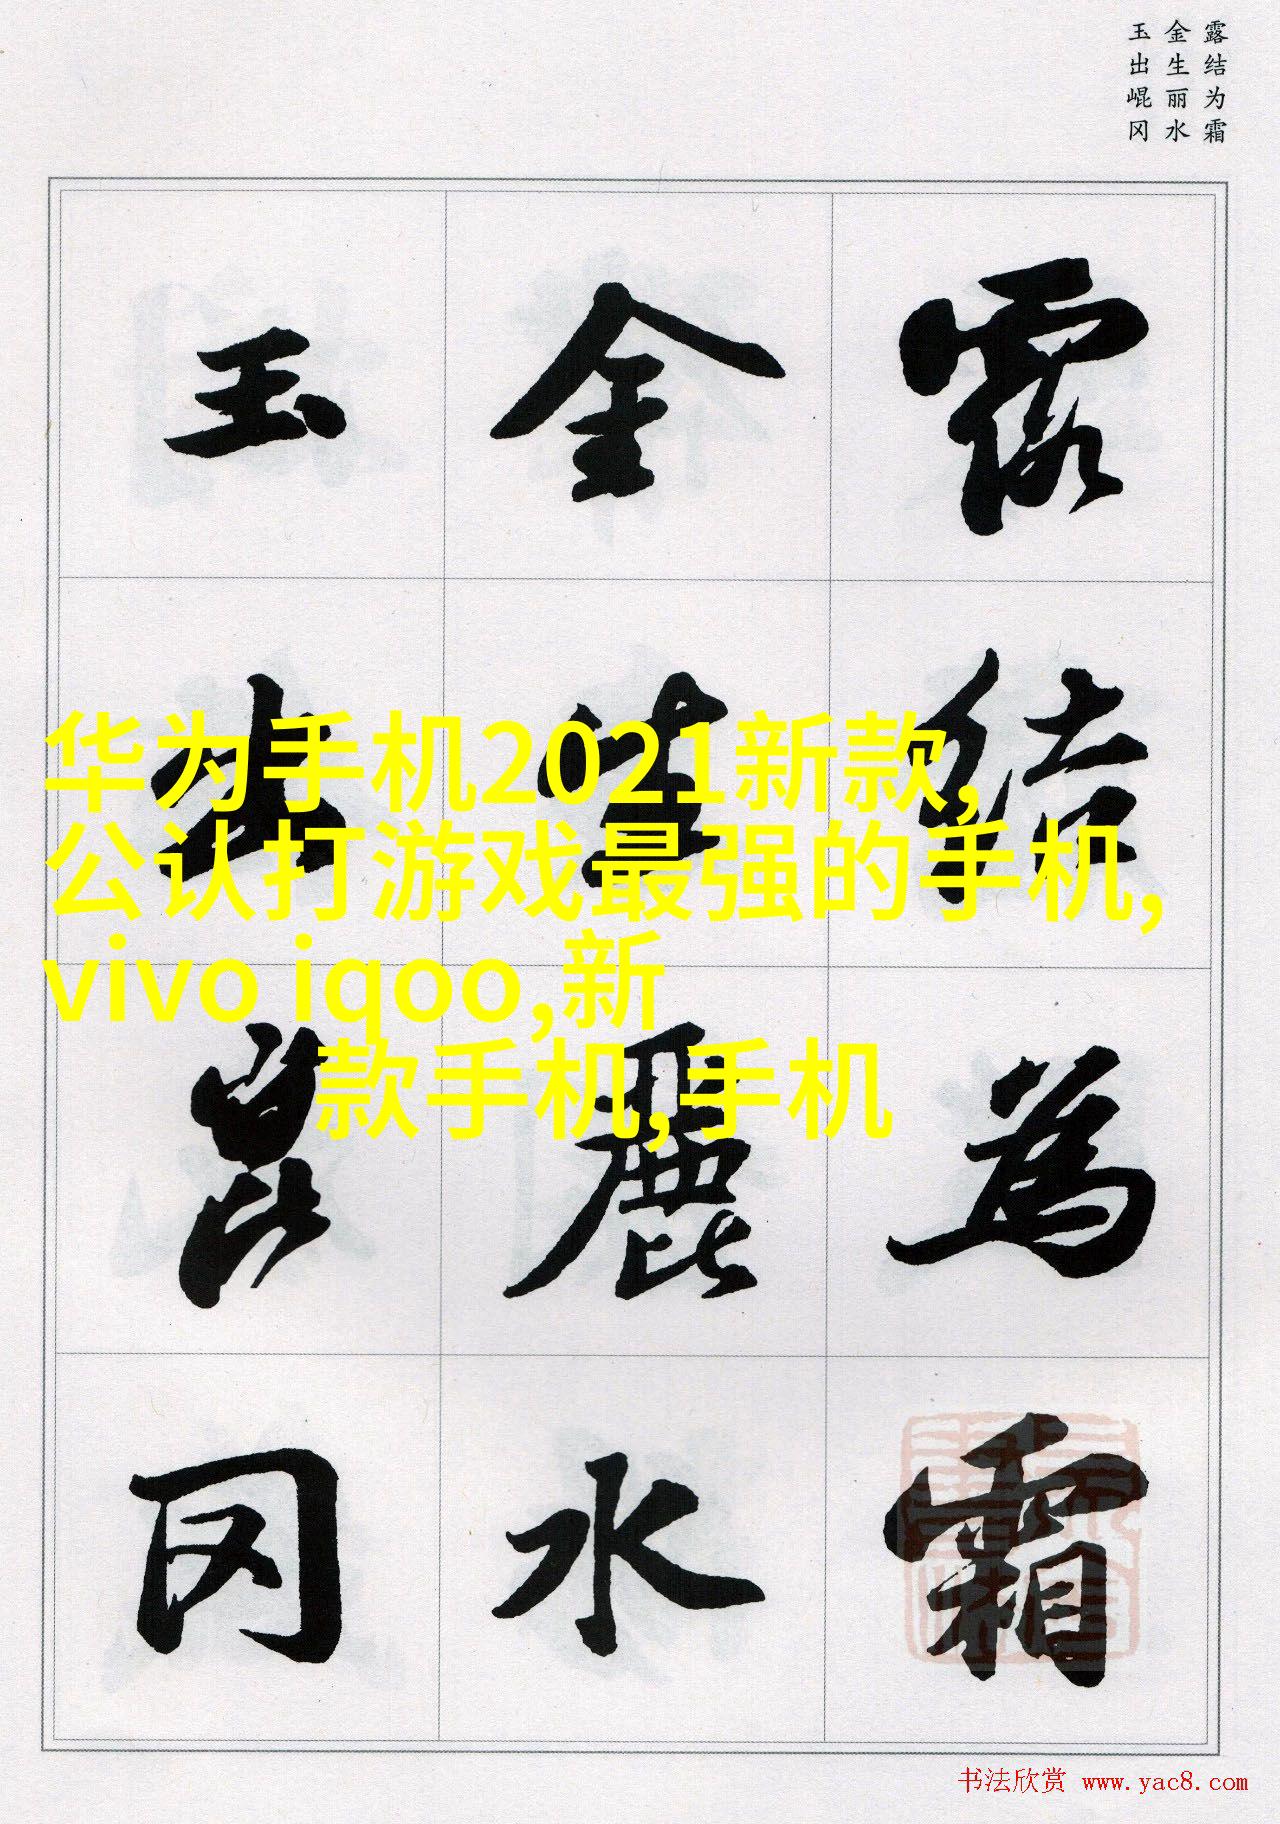 露结为霜
金生丽水
玉出崐冈
露結為霜
金生麗水
玉出崑冈
华为手机2021新款,
公认打游戏最强的手机,
vivo iqoo,新
款手机,手机
书法欣赏 www.yac8.com